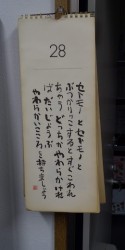 28
セトモノとセトモノと
ぶつかりっこするとすぐこわれ
ちゃうどっちかやわらかければ
だいじょうぶ
やわらかいこころを持ちましょう